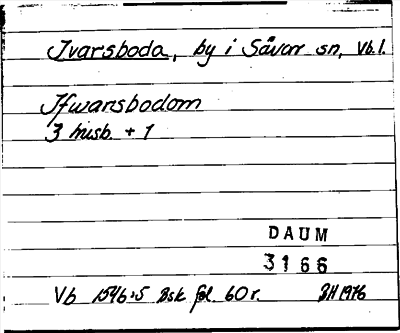 Ivarsboda, by i Sävar sn, Vb.l.
Ifwarsbodom
3 husb. + 1
DAUM
3166
Vb 1546:5 Bsk fol. 60 r. BH 1976